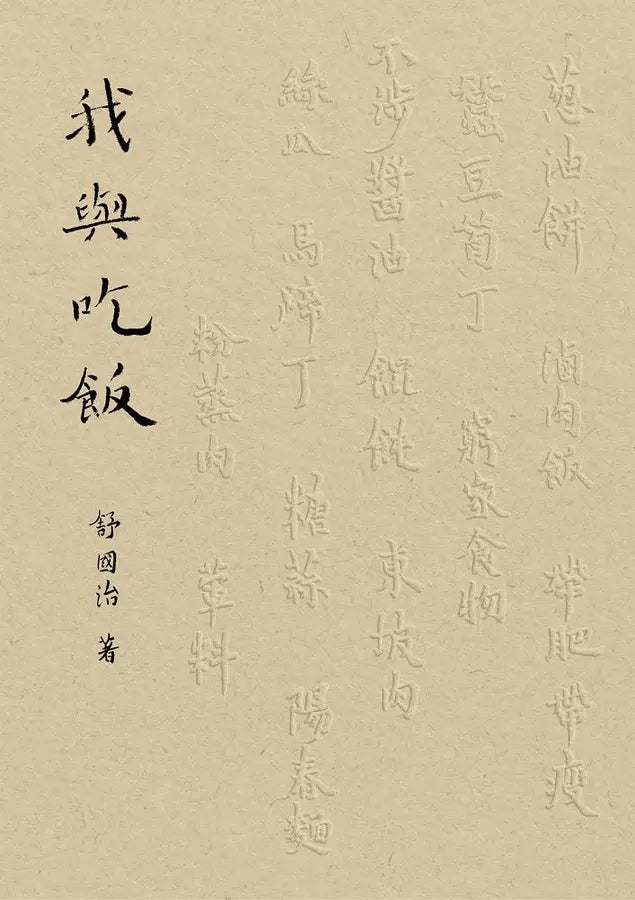 蔥油餅　滷肉飯　帶肥帶瘦
蠶豆筍丁　窮家食物
不涉醬油　餛飩　東坡肉
絲瓜　馬蹄丁　糖蒜　陽春麵
粉蒸肉　葷料
我與吃飯
舒國治 著